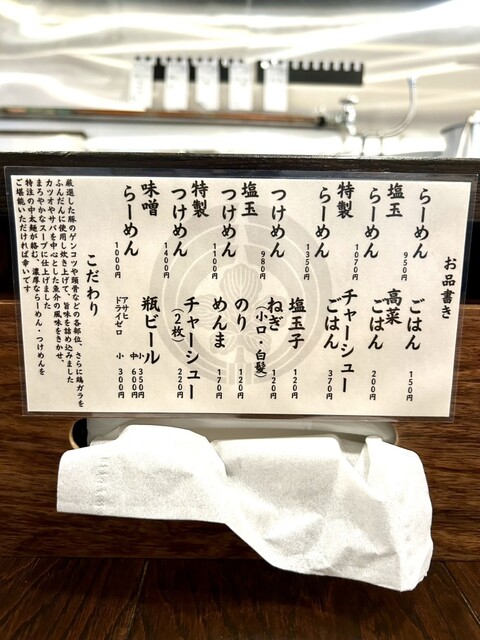 お品書き
らーめん 950円
塩玉らーめん 1070円
特製らーめん 1350円
つけめん 980円
塩玉つけめん 1100円
特製つけめん 1400円
味噌らーめん 1000円
ごはん 150円
高菜ごはん 200円
チャーシューごはん 370円
塩玉子 120円
ねぎ(小口・白髪) 120円
のり 120円
めんま 170円
チャーシュー(2枚) 220円
瓶ビール 中 600円
小 350円
アサヒドライゼロ 小 300円
こだわり
厳選した豚のゲンコツや頭骨などの各部位、さらに鶏ガラを
ふんだんに使用し炊き上げて、旨味を詰め込みました
カツオやサバを中心とした魚介の風味をきかせ、
まろやかなスープに仕上げました
特注の中太麺が絡む、濃厚ならーめん・つけめんを
ご堪能いただければ幸いです